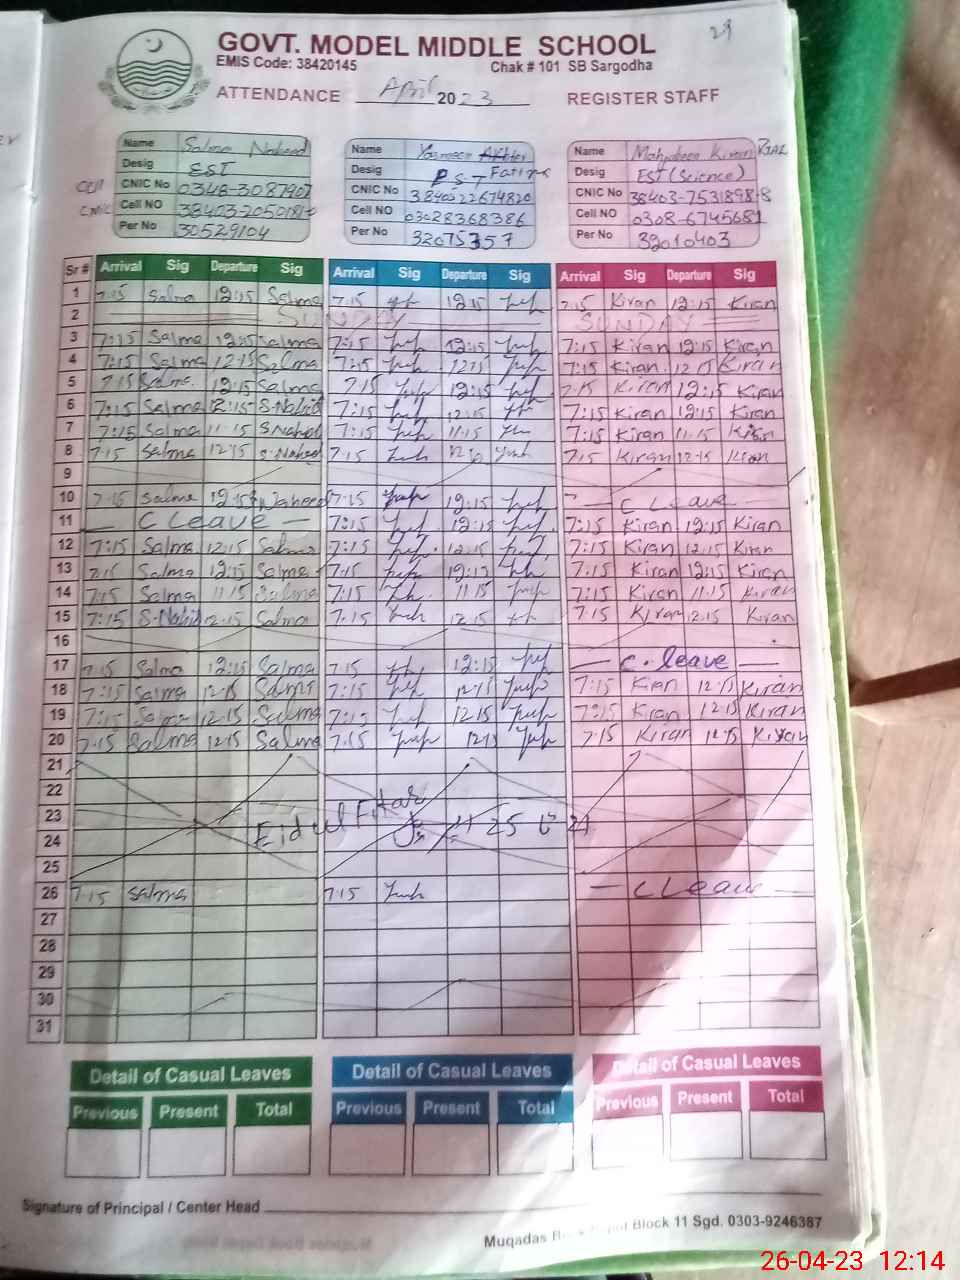 29
GOVT. MODEL MIDDLE SCHOOL
EMIS Code: 38420145 Chak # 101 SB Sargodha
ATTENDANCE April 2023 REGISTER STAFF
Name Salma Naheed
Desig EST
CNIC No 0348-3087907
Cell NO
Per No 30529104
Name Yasmeen Akhter
Desig PST Fatima
CNIC No 3840522674820
Cell NO 03028368386
Per No 32075357
Name Mahjabeen Kiran
Desig EST (Science)
CNIC No 38403-7531898-8
Cell NO 0308-6745681
Per No 32010403
Sr # Arrival Sig Departure Sig Arrival Sig Departure Sig Arrival Sig Departure Sig
1 7:15 Salma 12:15 Salma 7:15 12:15 7:15 Kiran 12:15 Kiran
2 SUNDAY SUNDAY
3 7:15 Salma 12:15 Salma 7:15 12:15 7:15 Kiran 12:15 Kiran
4 7:15 Salma 12:15 Salma 7:15 12:15 7:15 Kiran 12:15 Kiran
5 7:15 Salma 12:15 Salma 7:15 12:15 7:15 Kiran 12:15 Kiran
6 7:15 Salma 12:15 S.Nahid 7:15 12:15 7:15 Kiran 12:15 Kiran
7 7:15 Salma 11:15 S.Nahed 7:15 11:15 7:15 Kiran 11:15 Kiran
8 7:15 Salma 12:15 S.Naheed 7:15 7:15 Kiran 12:15 Kiran
9
10 7:15 Salma 12:15 Naheed 7:15 12:15 – C Leave –
11 – C Leave – 7:15 12:15 7:15 Kiran 12:15 Kiran
12 7:15 Salma 12:15 Salma 7:15 12:15 7:15 Kiran 12:15 Kiran
13 7:15 Salma 12:15 Salma 7:15 12:15 7:15 Kiran 12:15 Kiran
14 7:15 Salma 11:15 Salma 7:15 11:15 7:15 Kiran 11:15 Kiran
15 7:15 S.Nahid 12:15 Salma 7:15 12:15 7:15 Kiran 12:15 Kiran
16
17 7:15 Salma 12:15 Salma 7:15 12:15 – C. leave –
18 7:15 Salma 12:15 Salma 7:15 12:15 7:15 Kiran 12:15 Kiran
19 7:15 Salma 12:15 Salma 7:15 12:15 7:15 Kiran 12:15 Kiran
20 7:15 Salma 12:15 Salma 7:15 12:15 7:15 Kiran 12:15 Kiran
21
22
23 Eid ul Fitar
24 25 21
25
26 7:15 Salma 7:15 – C Leave –
27
28
29
30
31
Detail of Casual Leaves Detail of Casual Leaves Detail of Casual Leaves
Previous Present Total Previous Present Total Previous Present Total
Signature of Principal / Center Head
Muqadas Block 11 Sgd. 0303-9246387
26-04-23 12:14